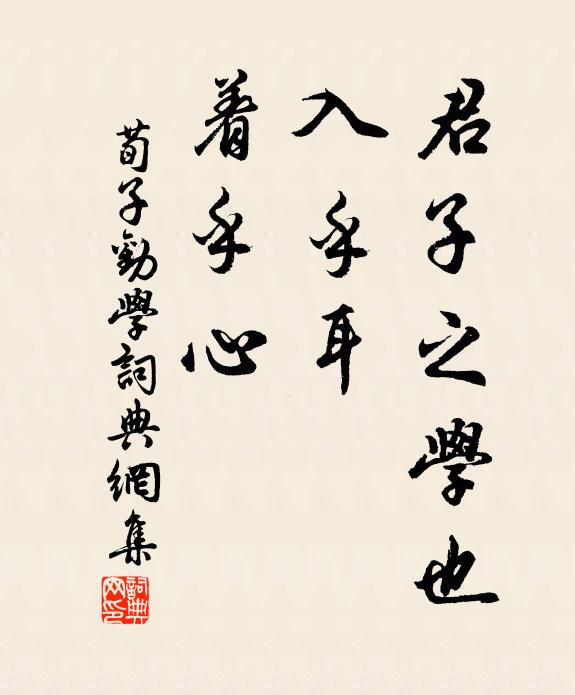 君子之學也
入乎耳
着乎心
荀子勸學詞典網集
詞典网印